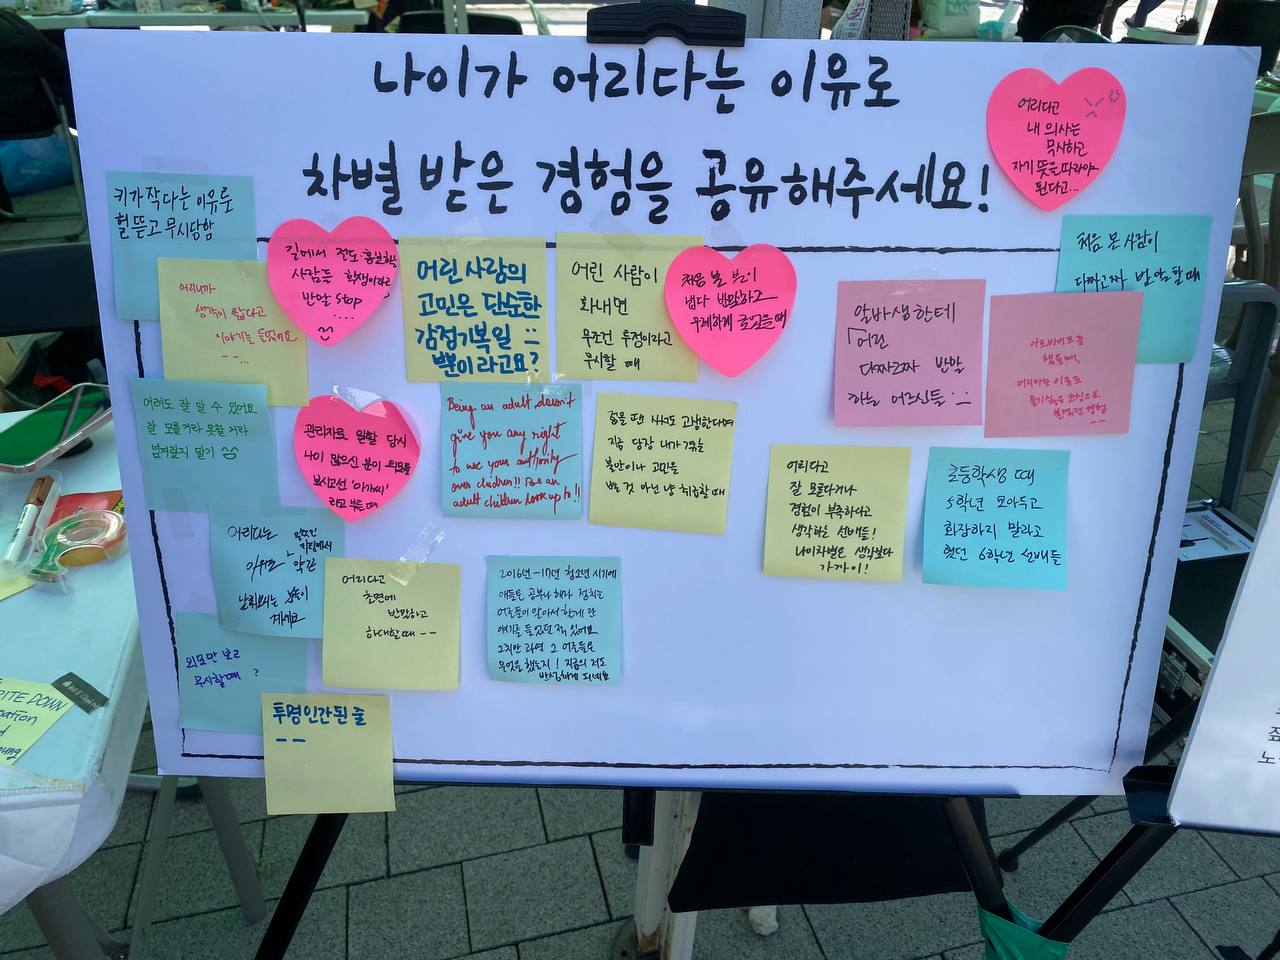 나이가 어리다는 이유로
차별 받은 경험을 공유해주세요!
어리다고
내 의사는
무시하고
자기 뜻을 따라야
된다고...
키가 작다는 이유로
헐뜯고 무시당함
어리니까
생각이 짧다고
이야기를 들었어요
ㅡㅡ...
길에서 전도·홍보하는
사람들 학생이라고
반말 stop
....
어린 사람의
고민은 단순한
감정기복일
뿐이라고요?
어린 사람이
화내면
무조건 투정이라고
무시할 때
처음 본 분이
냅다 반말하고
무례하게 굴었을때
알바생한테
어린
다짜고짜 반말
하는 어르신들
아르바이트를
했을때,
어리다는 이유로
처음 본 사람이
다짜고짜 반말할 때
어려도 잘 알 수 있어요
잘 모를거라 못할거라
넘겨짚지 말기
관리자로 일할 당시
나이 많으신 분이
부르실때
Being an adult doesn't
give you any right
to use your authority
over children!! Be an
adult children look up to!!
젊을 땐 사서도 고생한다며
지금 당장 내가 겪는
불안이나 고민을
별 것 아닌 냥 취급할 때
어리다고
잘 모른다거나
경험이 부족하다고
생각하는 선배들!
나이차별은 생각보다
가까이!
초등학생 때
5학년 모아두고
화장하지 말라고
했던 6학년 선배들
어리다고
초면에
반말하고
하대할때 ㅡㅡ
2016년-17년 청소년 시기에
애들은 공부나 해라 정치는
어른들이 알아서 할게 란
얘기를 들었던 적 있어요
그치만 과연 그 어른들은
무엇을 했는지! 지금의 저도
반성하게 되네요
외모만 보고
무시할때
?
투명인간된 줄
ㅡㅡ